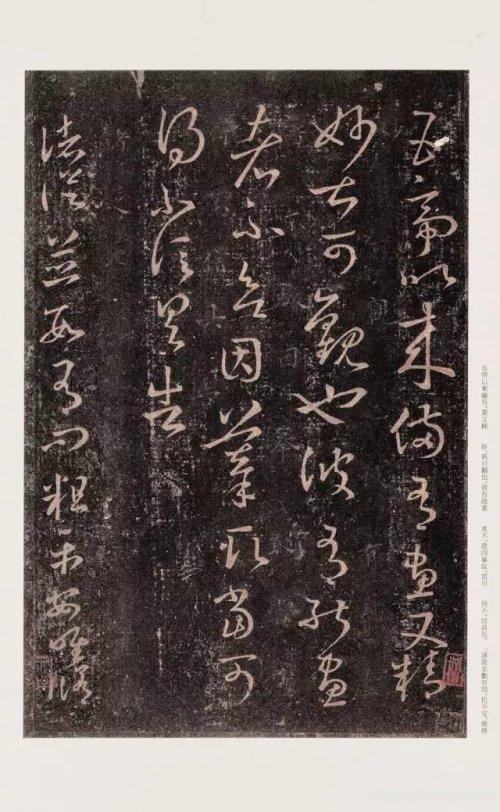 五帝以来備有畫又精
妙甚可觀也彼有能畫
者不欲因摹取當可
得不信具告
諸從並數有問粗平安唯脩
五帝以來備有，畫又精
妙，甚可觀也。彼有能畫
者不？欲因摹取，當可
得不？信具告。
諸從並數有問，粗平安。唯脩